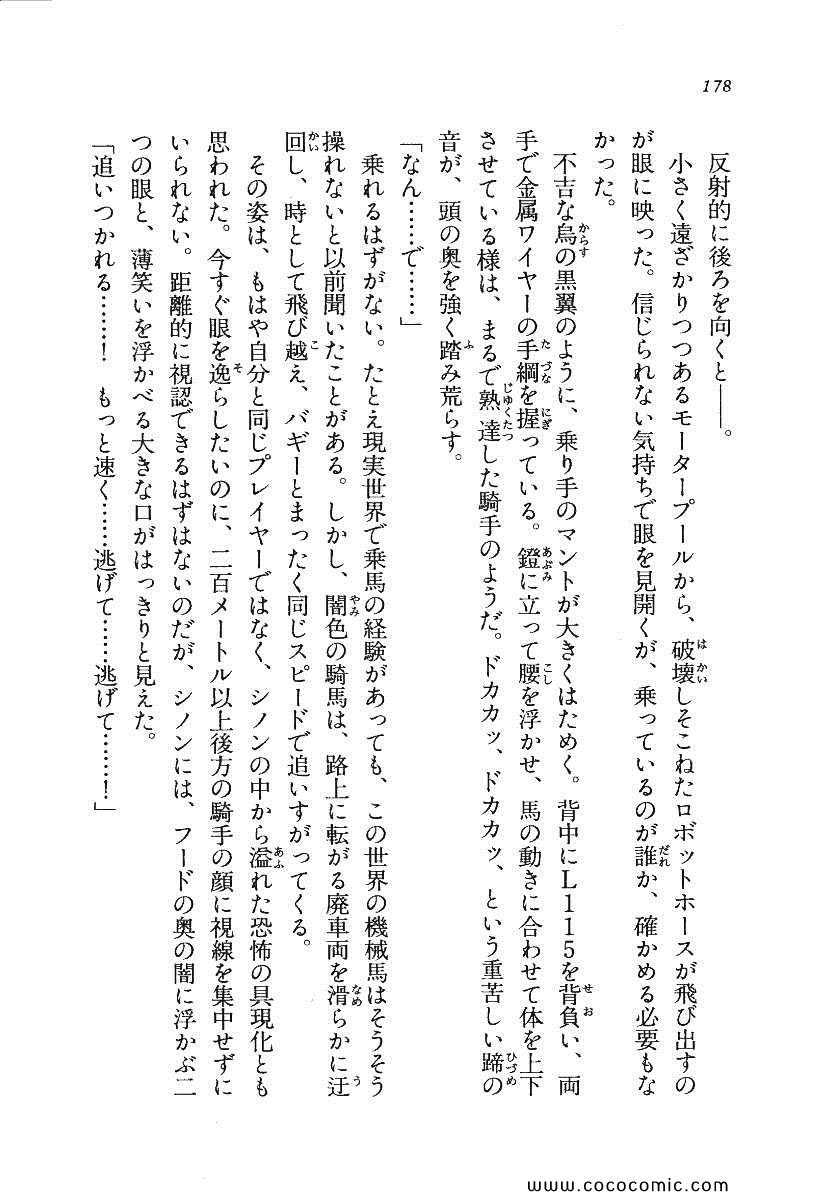 178
反射的に後ろを向くと――。
　小さく遠ざかりつつあるモータープールから、破壊しそこねたロボットホースが飛び出すの
が眼に映った。信じられない気持ちで眼を見開くが、乗っているのが誰か、確かめる必要もな
かった。
　不吉な烏の黒翼のように、乗り手のマントが大きくはためく。背中にL115を背負い、両
手で金属ワイヤーの手綱を握っている。鐙に立って腰を浮かせ、馬の動きに合わせて体を上下
させている様は、まるで熟達した騎手のようだ。ドカカッ、ドカカッ、という重苦しい蹄の
音が、頭の奥を強く踏み荒らす。
「なん……で……」
　乗れるはずがない。たとえ現実世界で乗馬の経験があっても、この世界の機械馬はそうそう
操れないと以前聞いたことがある。しかし、闇色の騎馬は、路上に転がる廃車両を滑らかに迂
回し、時として飛び越え、バギーとまったく同じスピードで追いすがってくる。
　その姿は、もはや自分と同じプレイヤーではなく、シノンの中から溢れた恐怖の具現化とも
思われた。今すぐ眼を逸らしたいのに、二百メートル以上後方の騎手の顔に視線を集中せずに
いられない。距離的に視認できるはずはないのだが、シノンには、フードの奥の闇に浮かぶ二
つの眼と、薄笑いを浮かべる大きな口がはっきりと見えた。
「追いつかれる……！　もっと速く……逃げて……逃げて……！」
www.cococomic.com